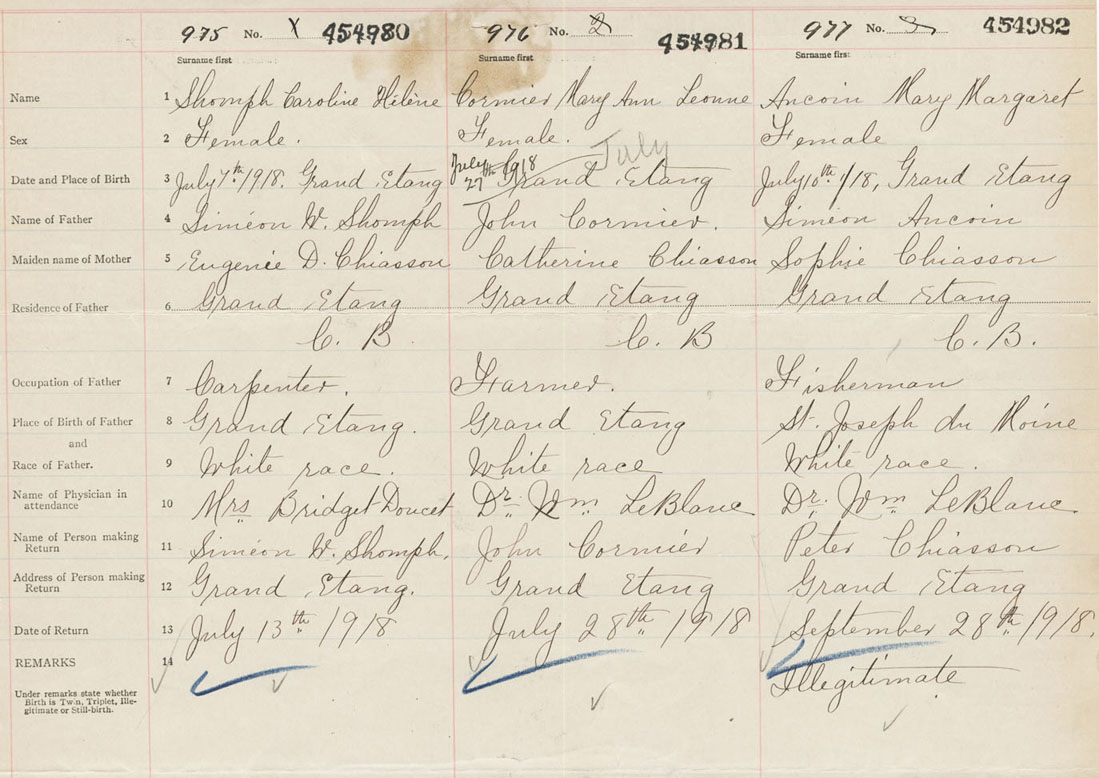 975 No. 1 454980 976 No. 2 454981 977 No. 3 454982
Surname first Surname first Surname first
Name 1 Shomph Caroline Hélène Cormier Mary Ann Leonne Aucoin Mary Margaret
Sex 2 Female. Female. Female
July
Date and Place of Birth 3 July 7th 1918. Grand Etang July 27th 1918 Grand Etang July 10th /18, Grand Etang
Name of Father 4 Siméon W. Shomph John Cormier. Siméon Aucoin
Maiden name of Mother 5 Eugenie D. Chiasson Catherine Chiasson Sophie Chiasson
Residence of Father 6 Grand Etang Grand Etang Grand Etang
C. B. C. B C. B.
Occupation of Father 7 Carpenter. Farmer. Fisherman
Place of Birth of Father 8 Grand Etang. Grand Etang St. Joseph du Moine
and
Race of Father. 9 White race. White race White race.
Name of Physician in attendance 10 Mrs Bridget Doucet Dr. Wm LeBlanc Dr. Wm LeBlanc.
Name of Person making Return 11 Siméon W. Shomph. John Cormier Peter Chiasson
Address of Person making Return 12 Grand Etang. Grand Etang Grand Etang
Date of Return 13 July 13th 1918 July 28th 1918 September 28th 1918.
REMARKS 14
Illegitimate
Under remarks state whether
Birth is Twin, Triplet, Ille-
gitimate or Still-birth.